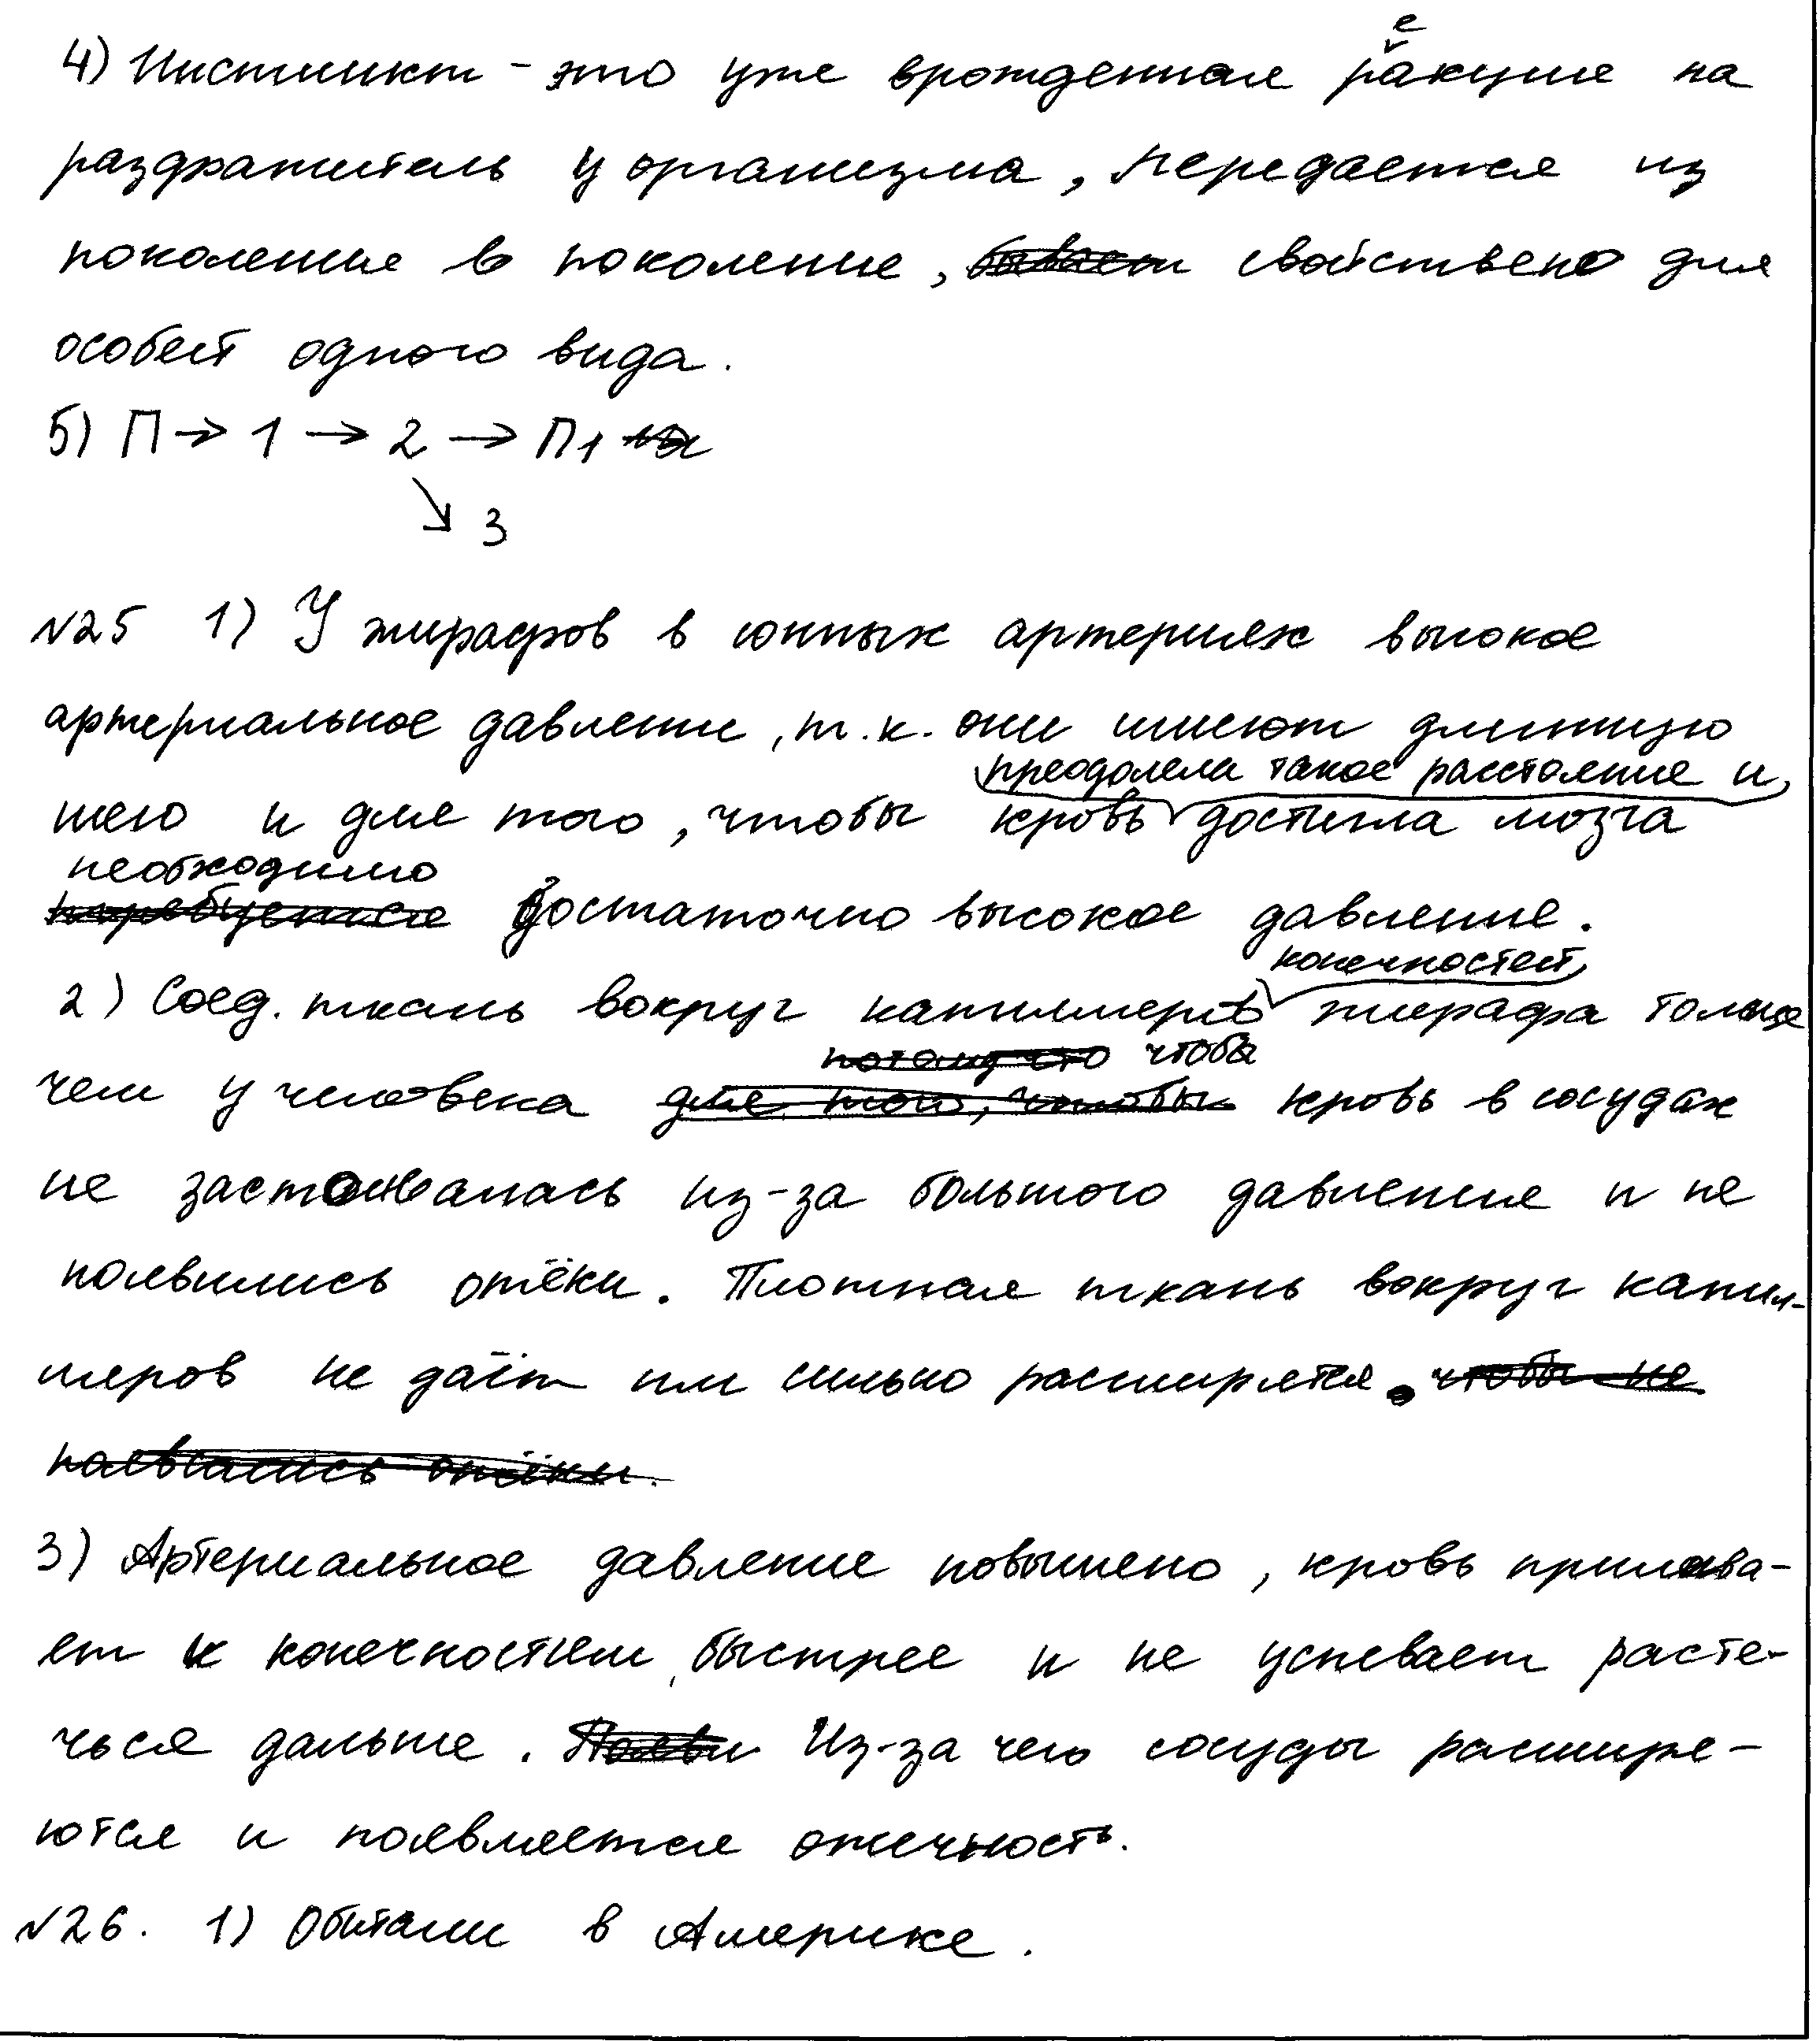 4) Инстинкт - это уже врожденная реакция на
раздражитель у организма, передается из
поколение в поколение, бывает свойствено для
особей одного вида.
5) П → 1 → 2 → П1
↘ 3
№25 1) У жирафов в юнных артериях высокое
артериальное давление, т.к. они имеют длинную
преодолела такое расстояние и
шею и для того, чтобы кровь достигла мозга
необходимо
требуется достаточно высокое давление.
конечностей
2) Соед. ткань вокруг капилляров жирафа толще
потому что чтобы
чем у человека для того, чтобы кровь в сосудах
не застаивалась из-за большого давления и не
появились отёки. Плотная ткань вокруг капил-
ляров не даёт им сильно расширятся. чтобы не
появились отёки.
3) Артериальное давление повышено, кровь прилива-
ет к конечностям быстрее и не успевает расте-
чься дальше. Появи Из-за чего сосуды расширя-
ются и появляется отечность.
№26. 1) Обитали в Америке.